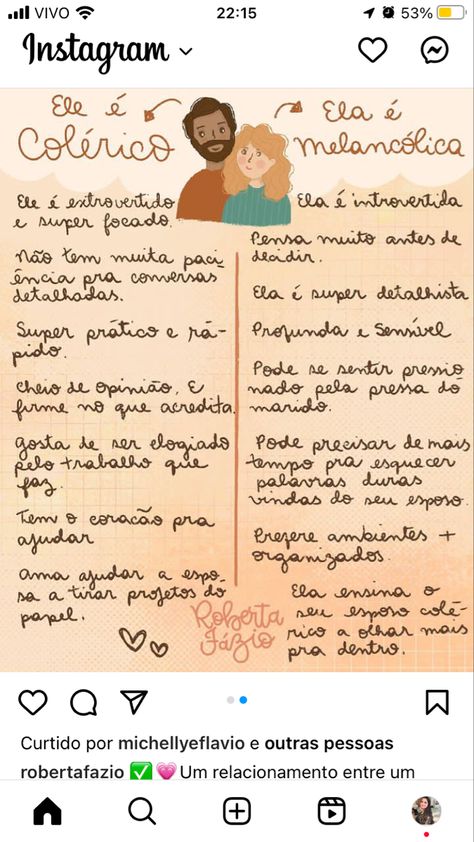 VIVO
22:15
53%
Instagram
Ele é
Colérico
Ela é
melancólica
Ele é extrovertido
e super focado.
Não tem muita paci-
ência pra conversas
detalhadas.
Super prático e rá-
pido.
Cheio de opinião, E
firme no que acredita.
gosta de ser elogiado
pelo trabalho que
faz.
Tem o coracão pra
ajudar
Ama ajudar a espo-
sa a tirar projetos do
papel.
Ela é introvertida
Pensa muito antes de
decidir.
Ela é super detalhista
Profunda e Sensível
Pode se sentir pressio
nado pela pressa do
marido.
Pode precisar de mais
tempo pra esquecer
palavras duras
vindas do seu esposo.
Prefere ambientes +
organizados.
Ela ensina o
seu esposo colé-
rico a olhar mais
pra dentro.
Roberta
Fázio
Curtido por michellyeflavio e outras pessoas
robertafazio ✅💗Um relacionamento entre um